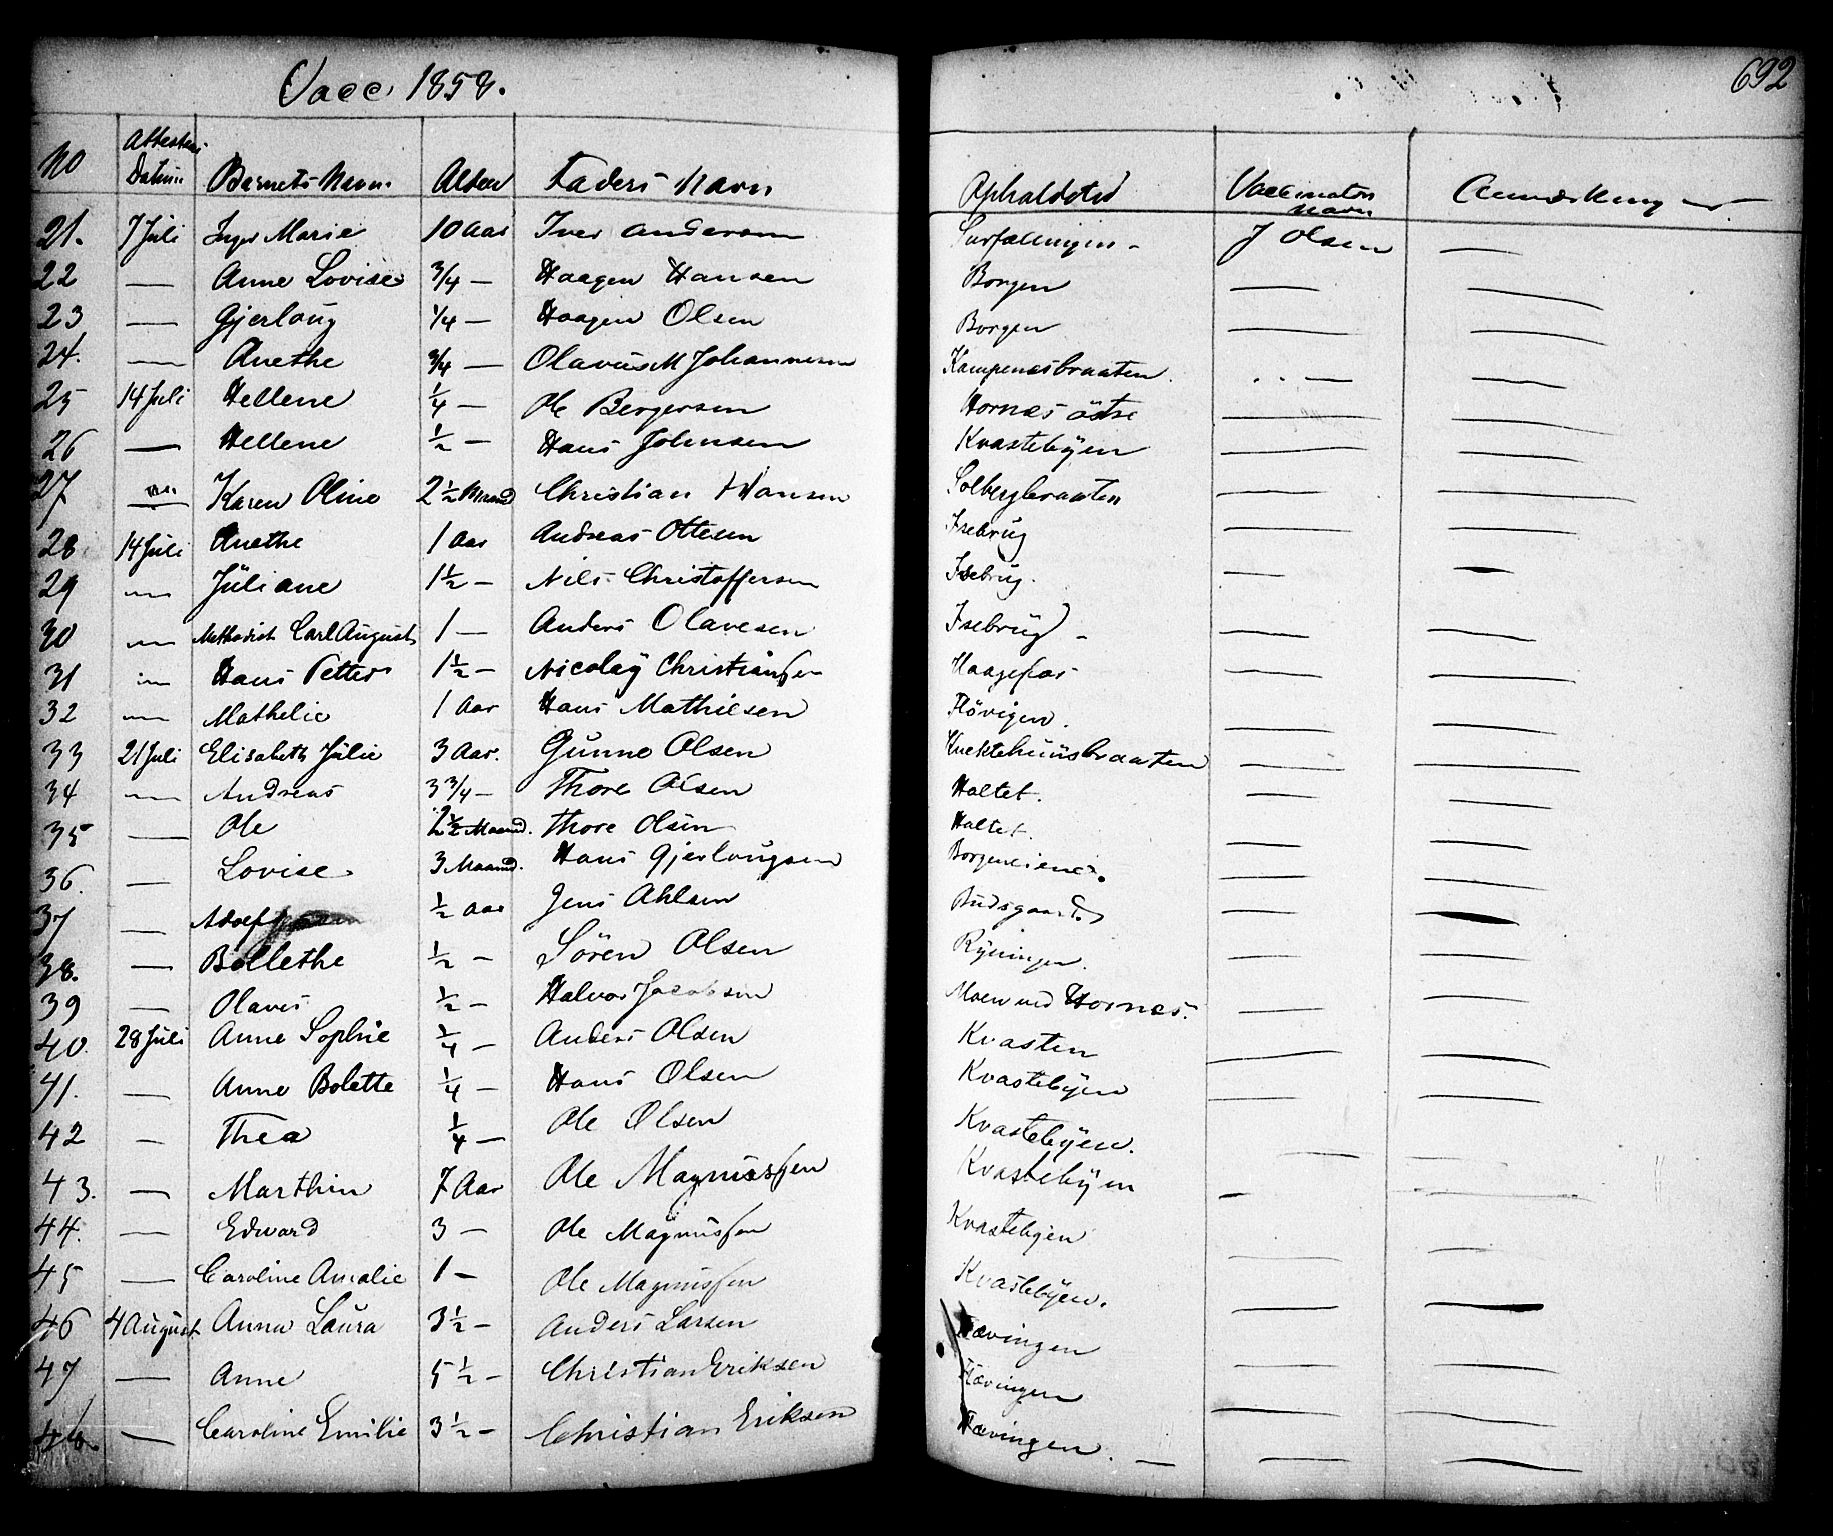 Vacc. 1858.
692
No Attestens Datum Barnets Navn Alder Faders Navn Opholdsted Vaccinators Navn Anmærkning
21. 7 Juli Inger Marie 10 Aar Iver Andersen J Olsen —
22 — Anne Lovise 3/4 — Haagen Hansen Borgen — —
23 — Gjerloug 1/4 — Haagen Olsen Borgen — —
24. — Anethe 3/4 — Olavus M Johannesen Kampenesbraaten — —
25 14 Juli Hellene 1/4 — Ole Bergersen Hornes östre — —
26 — Hellene 1/2 — Hans Johnsen Kvastebÿen — —
27 — Karen Oline 2 1/2 Maaned Christian Hansen Solbergbraaten — —
28 14 Juli Anethe 1 Aar Andreas Ottesen Isebrug — —
29 — Jüliane 1 1/2 — Nils Christoffersen Isebrug. — —
30 — Methodist Carl August 1 — Anders Olavesen Isebrug — —
31 — Hans Petter 1 1/2 — Nicolaÿ Christiansen Haagefos — —
32 — Mathelie 1 Aar Hans Mathiesen — —
33 21 Juli Elisabeth Jülie 3 Aar. Gunne Olsen Knektehuusbraaten — —
34 — Andreas 3 3/4 — Thore Olsen Holtet. — —
35 — Ole 2 1/2 Maaned. Thore Olsen Holtet. — —
36. — Lovise 3 Maaned. Hans Gjerlougsen — —
37 — Adolf 1/2 Aar Jens Ahlsen — —
38. — Bollethe 1/2 — Sören Olsen Ryningen. — —
39 — Olaves 1/2 — Halvor Jacobsen Moen ved Hornes. — —
40. 28 Juli Anne Sophie 1/4 — Anders Olsen Kvasten — —
41. — Anne Bolette 1/4 — Hans Olsen Kvastebÿen — —
42 — Thea 1/4 — Ole Olsen Kvastebÿen. — —
43. — Marthin 7 Aar Ole Magnussen Kvastebÿen — —
44. — Edward 3 — Ole Magnussen Kvastebyen — —
45 — Caroline Amalie 1 — Ole Magnussen Kvastebÿen. — —
46 4 August Anna Laura 3 1/2 — Anders Larsen Hævingen — —
47 — Anne 5 1/2 — Christian Eriksen Hævingen — —
48. — Caroline Emilie 3 1/2 — Christian Eriksen Hævingen. — —